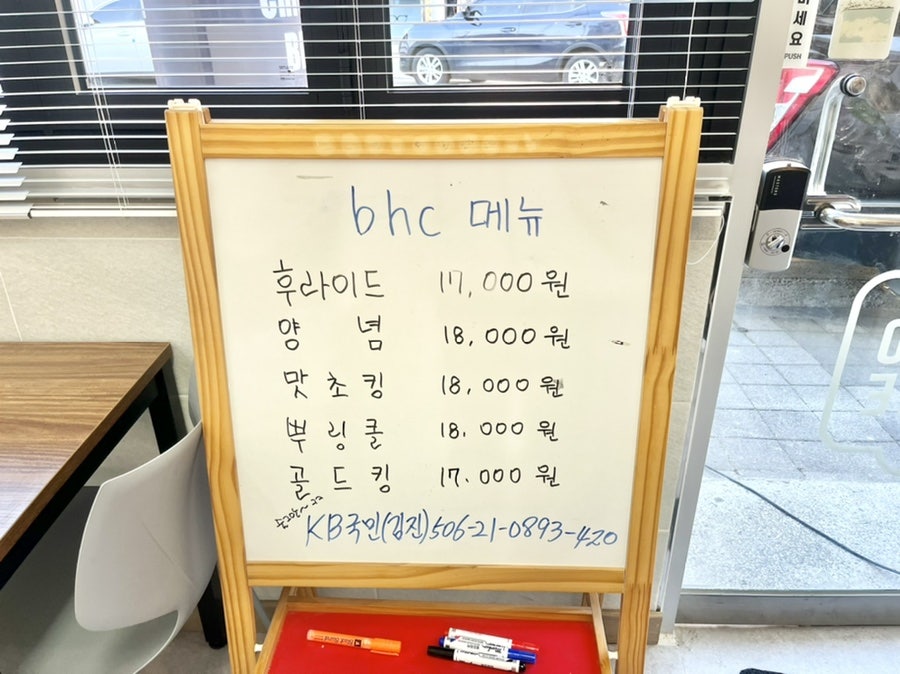 bhc 메뉴
후라이드 17,000원
양 념 18,000원
맛초킹 18,000원
뿌링클 18,000원
골드킹 17.000원
KB국민(김진)506-21-0893-420
세요
PUSH